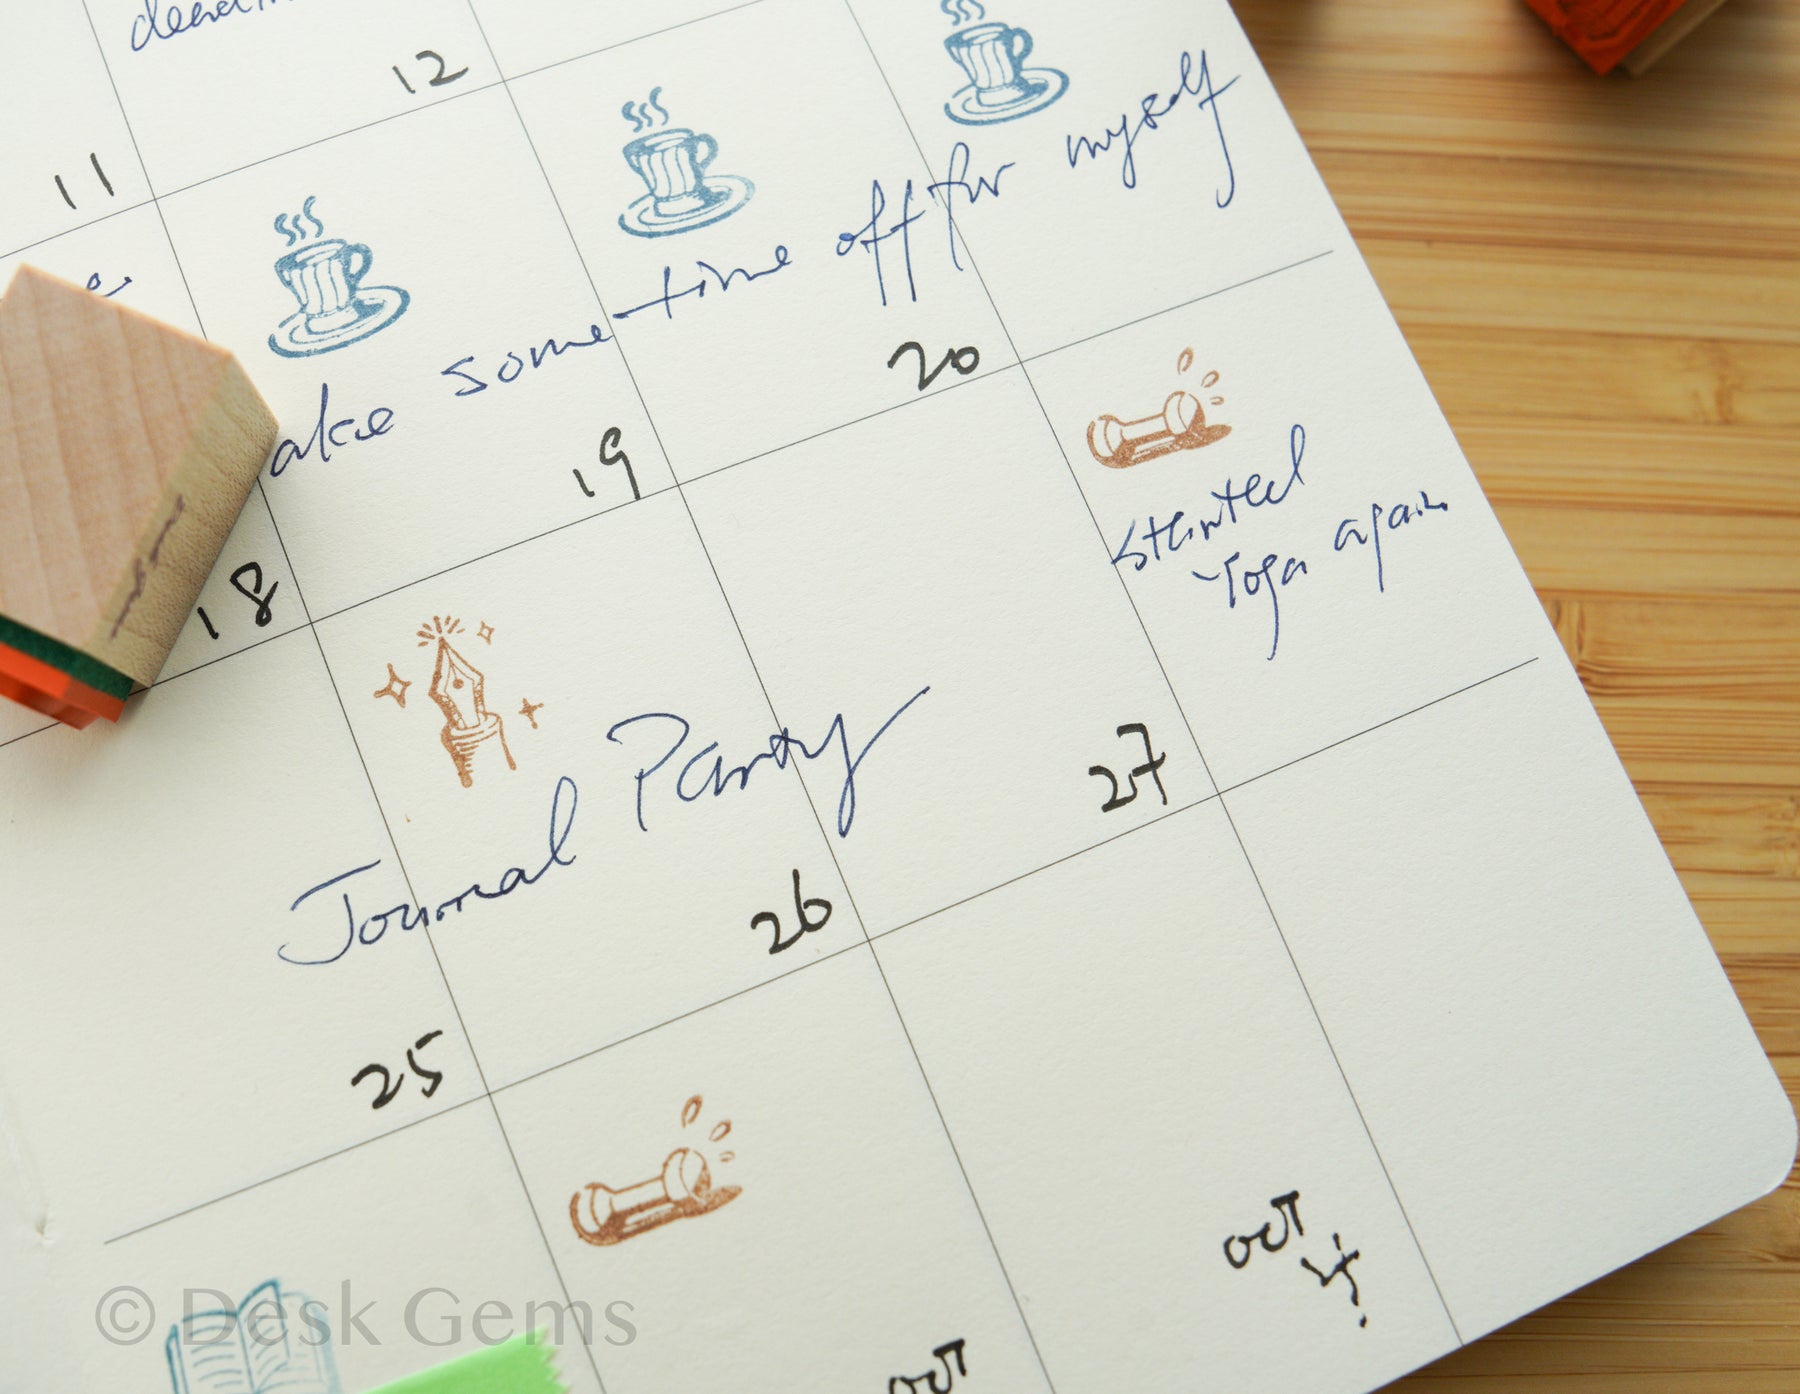 12
11
ake some time off for myself
20
19
18
started
Yoga again
27
Journal Party
26
25
OCT
OCT
© Desk Gems